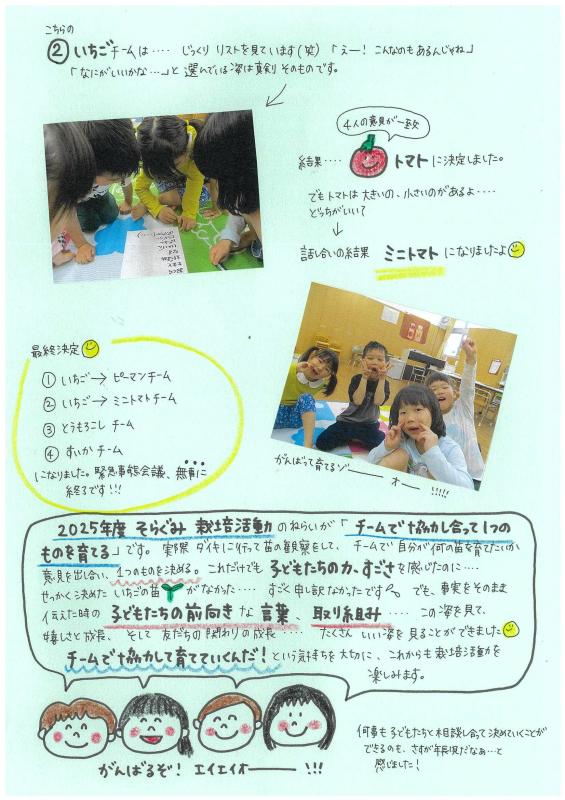 こちらの
② いちごチームは‥‥ じっくり リストを見ています(笑) 「えー! こんなのもあるんじゃね」
「なにがいいかな…」と 選んでいる姿は真剣 そのものです。
4人の意見が一致
結果‥‥ トマトに決定しました。
でもトマトは大きいの、小さいのがあるよ‥‥
どっちがいい?
話し合いの結果 ミニトマトになりましたよ
最終決定
① いちご→ピーマンチーム
② いちご→ミニトマトチーム
③ とうもろこし チーム
④ すいか チーム
になりました。緊急事態会議、無事に
終了です!!!
がんばって育てるゾー オー !!!!!
2025年度 そらぐみ 栽培活動のねらいが「チームで協力し合って1つの
ものを育てる」です。実際 ダイキに行って苗の観察をして、チームで自分が何の苗を育てたいか
意見を出し合い、1つのものを決める。これだけでも 子どもたちの力、すごさを感じたのに‥‥
せっかく決めた いちごの苗 がなかった‥‥ すごく申し訳なかったです でも、事実をそのまま
伝えた時の 子どもたちの前向きな言葉、取り組み‥‥ この姿を見て、
嬉しさと成長、そして 友だちの関わりの成長‥‥ たくさん いい姿を見ることができました
チームで協力して育てていくんだ!という気持ちを大切に、これからも栽培活動を
楽しみます。
がんばるぞ! エイエイオー !!!
何事も子どもたちと相談し合って決めていくことが
できるのも、さすが年長児だなぁ…と
感じました!